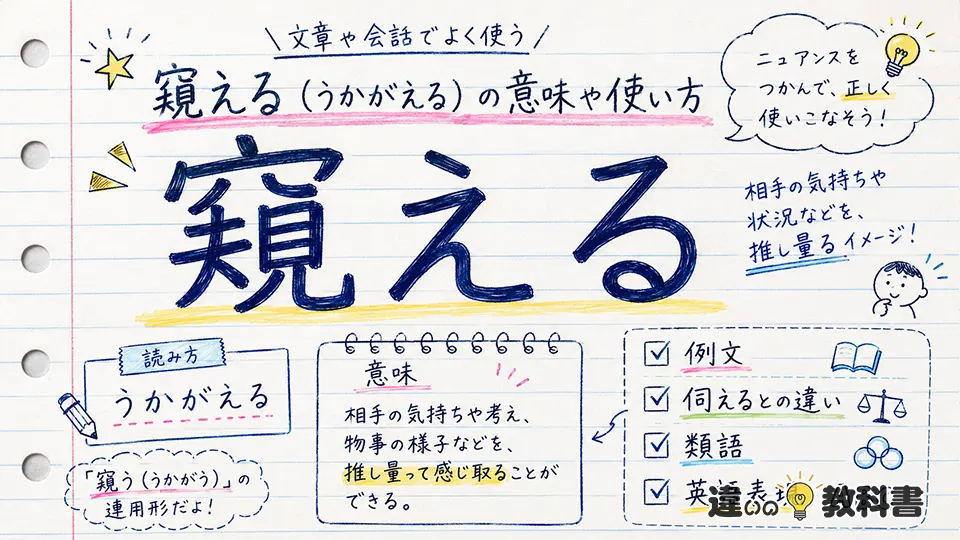 文章や会話でよく使う
窺える（うかがえる）の意味や使い方
ニュアンスを
つかんで、正しく
使いこなそう！
窺える
相手の気持ちや
状況などを、
推し量るイメージ！
読み方
うかがえる
「窺う（うかがう）」の
連用形だよ！
意味
相手の気持ちや考え、
物事の様子などを、
推し量って感じ取ることが
できる。
例文
伺えるとの違い
類語
英語表現
違いの教科書